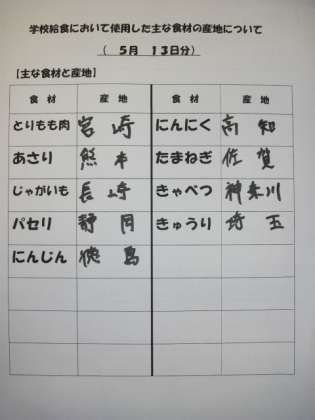 学校給食において使用した主な食材の産地について
( 5月 13日分)
【主な食材と産地】
食 材 産 地 食 材 産 地
とりもも肉 宮崎 にんにく 高知
あさり 熊本 たまねぎ 佐賀
じゃがいも 長崎 きゃべつ 神奈川
パセリ 静岡 きゅうり 埼玉
にんじん 徳島